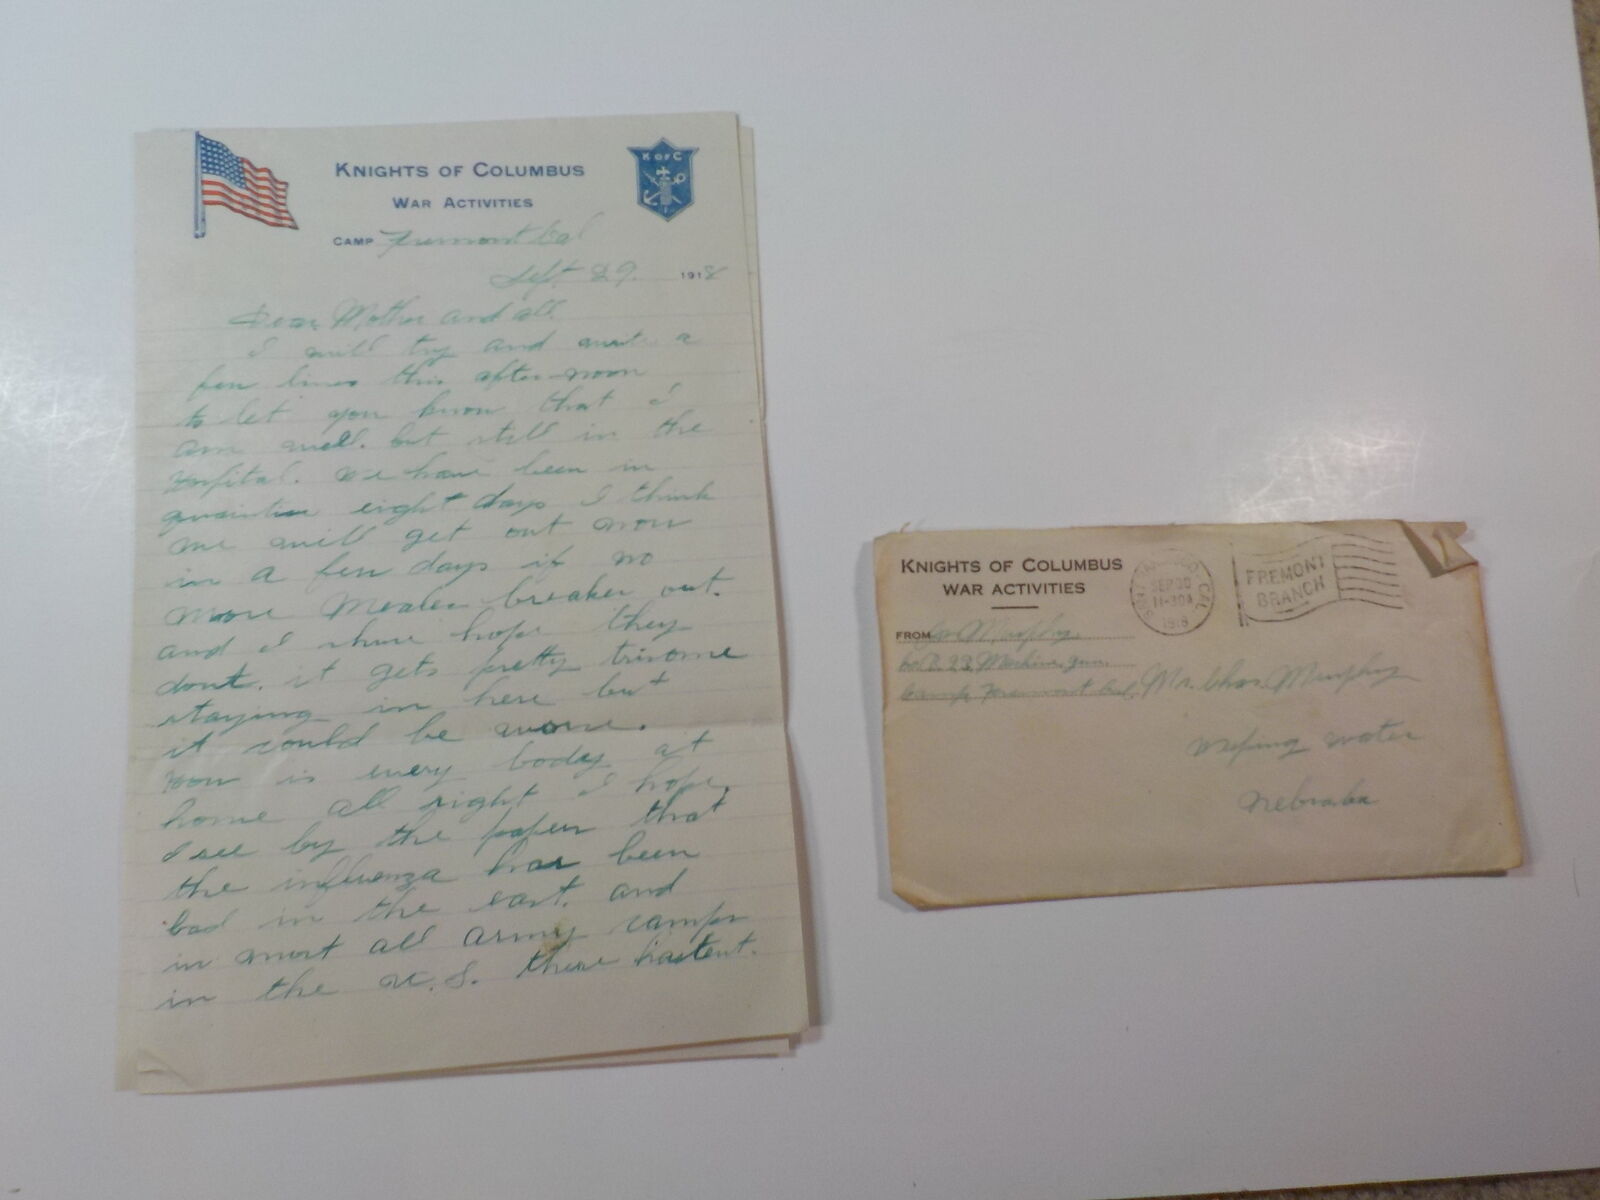 KNIGHTS OF COLUMBUS
WAR ACTIVITIES
K OF C
CAMP Fremont Cal
Sept 29. 1918
Dear Mother and all
I will try and write a
few lines this after-noon
to let you know that I
am well. but still in the
Hospital. we have been in
eight days I think
we will get out now
in a few days if no
more Meales breakes out.
and I shure hope they
dont. it gets pretty trisome
staying in here but
it could be worse.
How is every body at
home all right I hope,
I see by the papers that
the influenza has been
bad in the east. and
in most all army camps
in the U.S. there hastent.
KNIGHTS OF COLUMBUS
WAR ACTIVITIES
FROM Murphy
Co. B. 23 Machine gun.
Camp Fremont Cal.
SEP 30
11-30A
1918
CAL.
FREMONT
BRANCH
Mr. Chas. Murphy
Weeping water
Nebraska